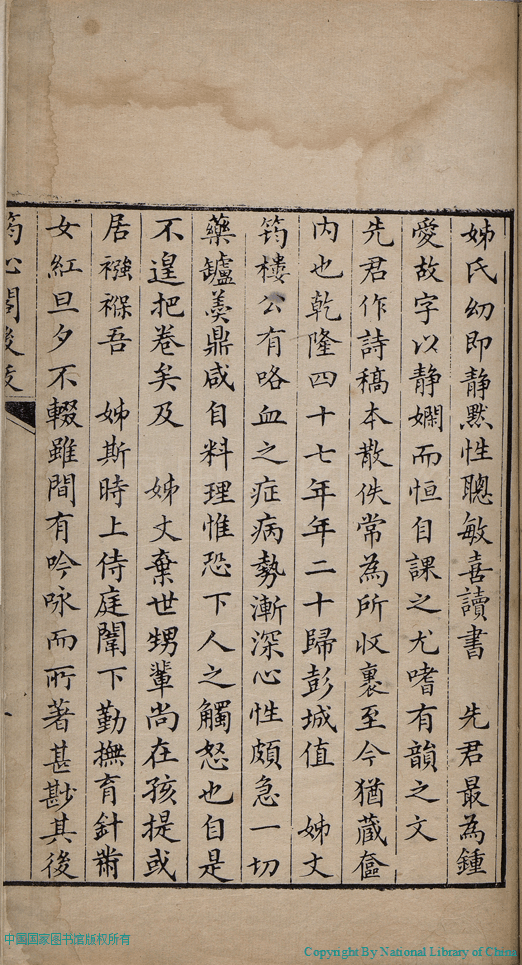 姊氏幼即静默性聰敏喜讀書　先君最為鍾
愛故字以静嫻而恒自課之尤嗜有韻之文
先君作詩稿本散佚常為所収裹至今猶藏奩
内也乾隆四十七年年二十歸彭城值　姊丈
筠樓公有咯血之症病勢漸深心性頗急一切
藥鑪羮鼎咸自料理惟恐下人之觸怒也自是
不遑把卷矣及　姊丈棄世甥輩尚在孩提或
居襁褓吾　姊斯時上侍庭闈下勤撫育針黹
女紅旦夕不輟雖間有吟咏而所著甚尠其後
筠心閣後跋
中国国家图书馆版权所有
Copyright By National Library of China